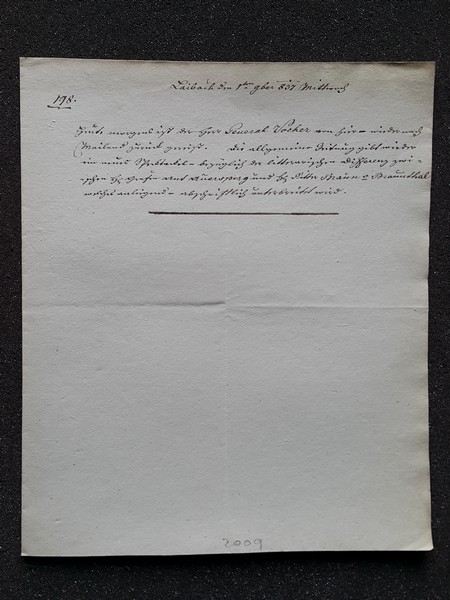 Laibach den 1ten 9ber 837 Mittwoch
178.
Heute morgens ist der Herr General Vocher von hier wieder nach
Mailand zurück gereist. Die allgemeine Zeitung gibt wieder
ein neues Spektakel bezüglich der litterarischen Differenz zwi-
schen H. Grafen Ant Auersperg und H. Ritter Braun v Braunthal
welches anliegend abschriftlich unterbreitet wird.
2009